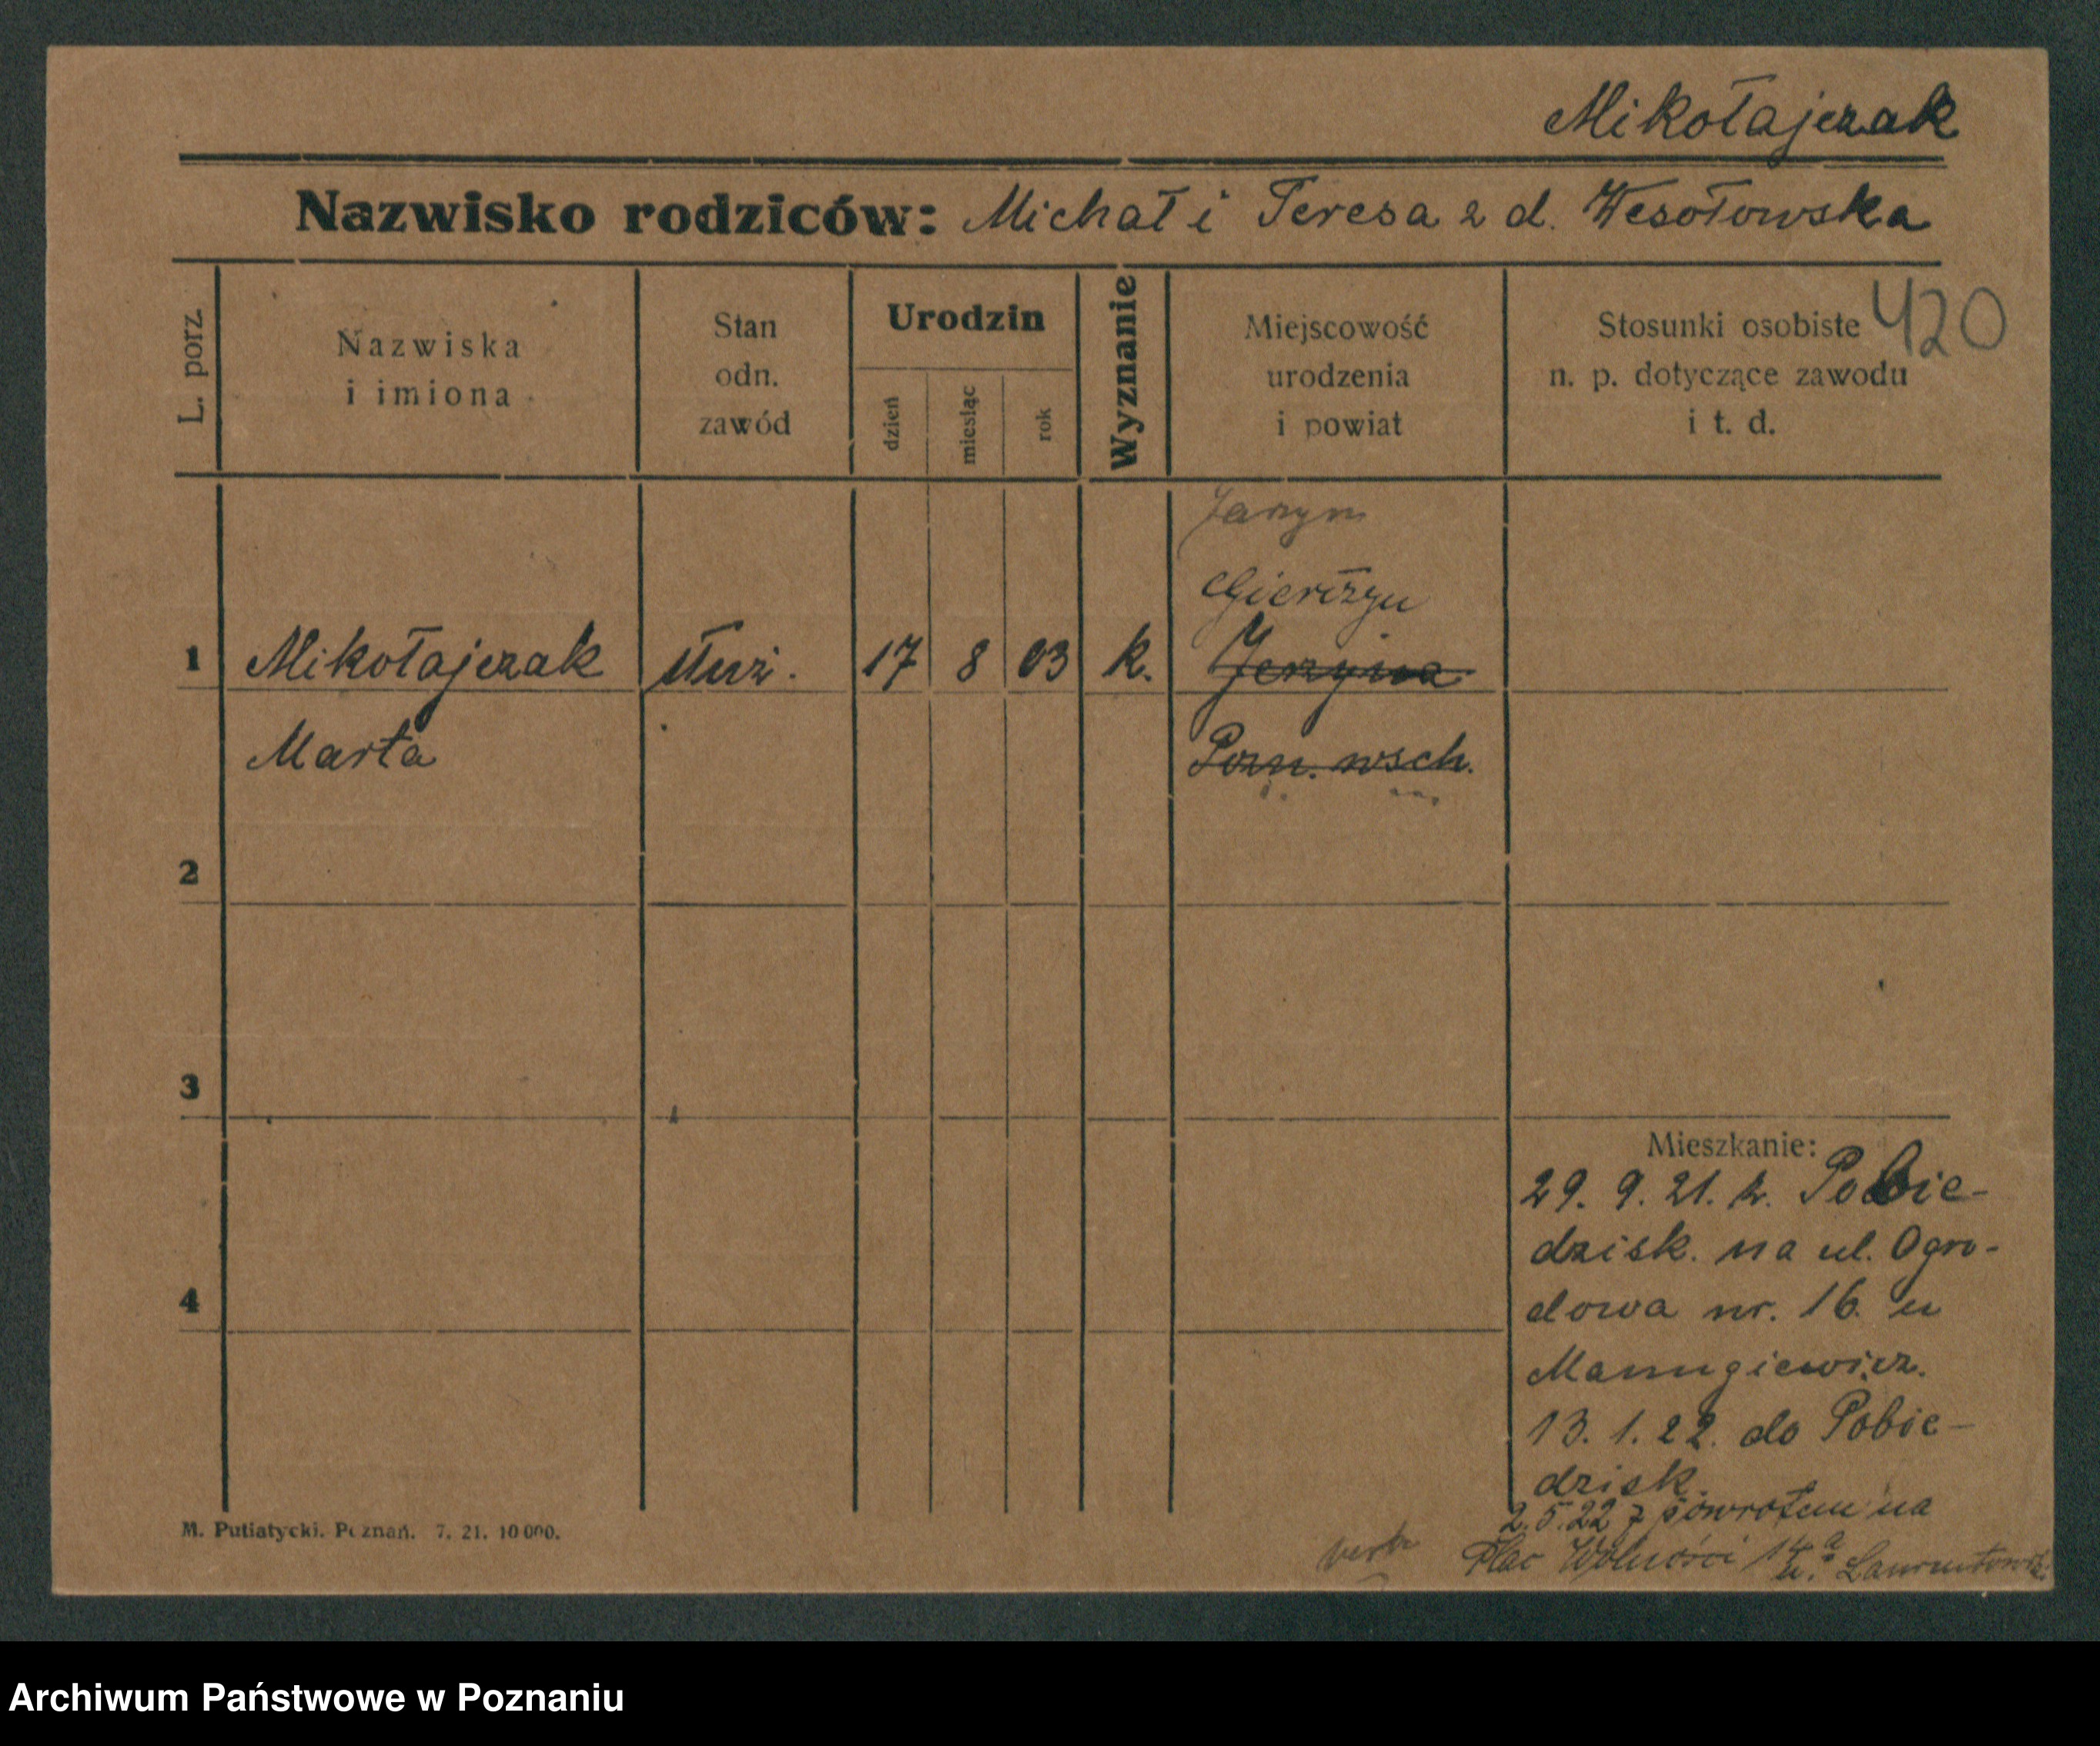 Mikołajczak
Nazwisko rodziców: Michał i Teresa z d. Wesołowska
420
L. porz.
Nazwiska
i imiona
Stan
odn.
zawód
Urodzin
dzień
miesiąc
rok
Wyznanie
Miejscowość
urodzenia
i powiat
Stosunki osobiste
n. p. dotyczące zawodu
i t. d.
1 Mikołajczak służ. 17 8 03 k.
Marta
Pozn. wsch.
2
3
4
Mieszkanie:
29. 9. 21. z. Pobie-
dzisk. na ul. Ogro-
dowa nr. 16. u
13. 1. 22. do Pobie-
dzisk.
2.5.22 z powrotem na
Plac Wolności 14a u.
M. Putiatycki. Poznań. 7. 21. 10 000.
Archiwum Państwowe w Poznaniu